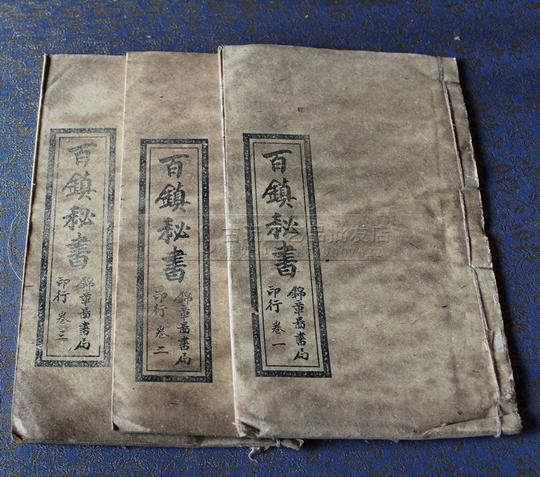 百鎮秘書
錦章啚書局
印行 卷一
百鎮秘書
錦章啚書局
印行 卷二
百鎮秘書
錦章啚書局
印行 卷三